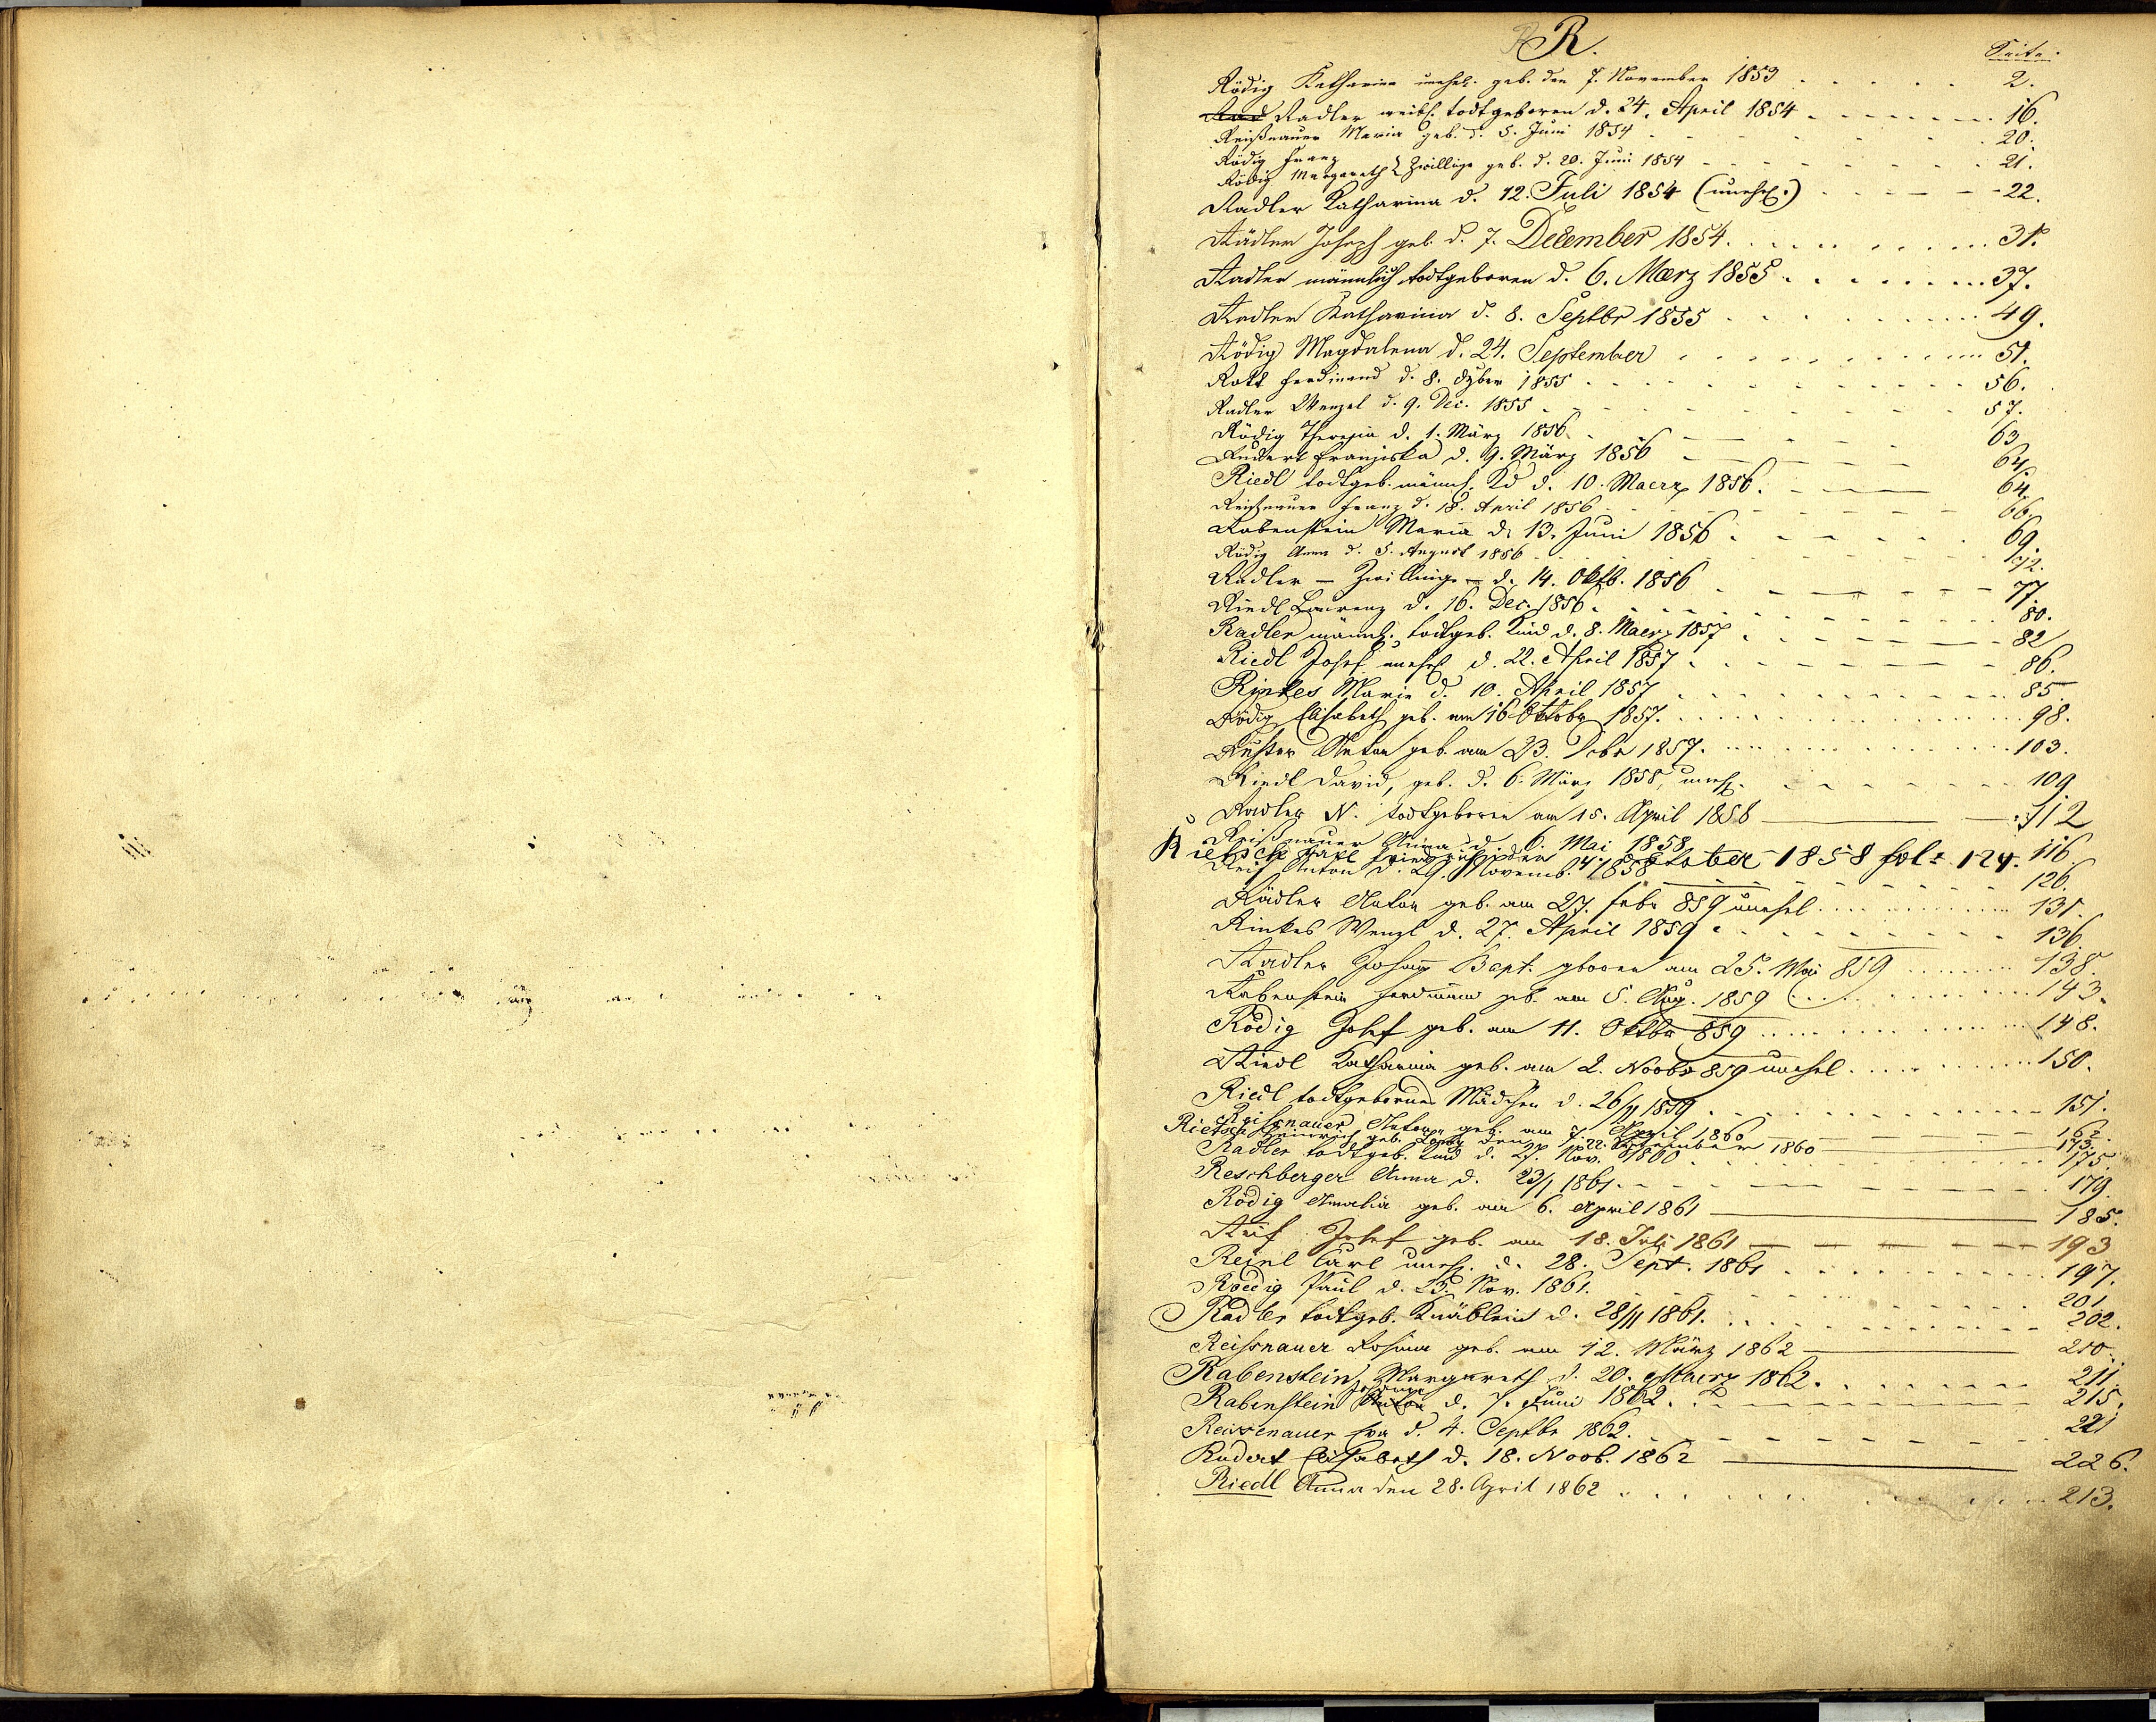 R.
Seite.
Rödig Katharina unehel. geb. den 7. November 1853 2.
Radler weibl. todtgeboren d. 24. April 1854 16.
Reißnauer Maria geb. d. 5. Juni 1854 20.
Rödig Franz
Rödig Margareth } Zwillige geb. d. 20. Juni 1854 21.
Radler Katharina d. 12. Juli 1854 (unehl.) 22.
Rädler Joseph geb. d. 7. December 1854 31.
Radler männlich todtgeboren d. 6. Maerz 1855 37.
Radler Katharina d. 8. Septbr 1855 49.
Rödig Magdalena d. 24. September 51.
Rott Ferdinand d. 8. 1855 56.
Radler Wenzel d. 9. Dec. 1855 57.
Rödig Theresia d. 1. März 1856 63
Rudert Franziska d. 9. März 1856 64.
Riedl todtgeb. männl. Kd d. 10. Maerz 1856. 64.
Reißnauer Franz d. 18. April 1856 66.
Rabenstein Maria d. 13. Juni 1856 69.
Rödig Anna d. 5. August 1856 72.
Radler – Zwillinge – d. 14. Oktb. 1856 77.
Riedl Laurenz d. 16. Dec. 1856. 80.
Radler männl. todtgeb. Kind d. 8. Maerz 1857 82
Riedl Josef unehl. d. 22. April 1857 86.
Rinkes Marie d. 10. April 1857 85
Rödig Elisabeth geb. am 16 Oktobr 1857. 98.
Anton geb. am 23. Debr 1857. 103.
Riedl David, geb. d. 6. März 1858, unehl. 109
Radler N. todtgeboren am 15. April 1858 112
Reißnauer Anna d. 6. Mai 1858 116.
Rietsch Karl Friedrich den 14 Oktober 1858 fol: 124.
Reif Anton d. 29. Novemb. 1858 126.
Rädler Anton geb. am 27. Febr 859 unehel 131.
Rinkes Wenzl d. 27. April 1859 136
Radler Johann Bapt. geboren am 25. Mai 859 138.
Rabenstein Ferdinand geb. am 5. Aug. 1859 143.
Rödig Josef geb. am 11. Oktbr 859 148.
Riedl Katharina geb. am 2. Novbr 859 unehel 150.
Riedl todtgebornes Mädchen d. 26/11 1859 151.
Reißnauer Anton geb. am 7. April 1860 162.
Rietsch Heinrich geb. den 22. September 1860 173.
Radler todtgeb. Kind d. 27. Nov. 1860 175.
Reschberger Anna d. 23/1 1861. 179.
Rödig Amalia geb. am 6. April 1861 185.
Reif Josef geb. am 18. Juli 1861 193
Reinl Carl unehl. d. 28. Sept. 1861 197.
Roedig Paul d. 25. Nov. 1861. 201
Radler todtgeb. Knäblein d. 28/11 1861. 202.
Reissnauer Rosina geb. am 12. März 1862 210.
Rabenstein Margareth d. 20. Maerz 1862. 211.
Rabenstein Johann d. 7. Juni 1862. 215.
Reissenauer Eva d. 4. Septbr 1862. 221
Rudert Elisabeth d. 18. Novb. 1862 226.
Riedl Anna den 28. April 1862 213.